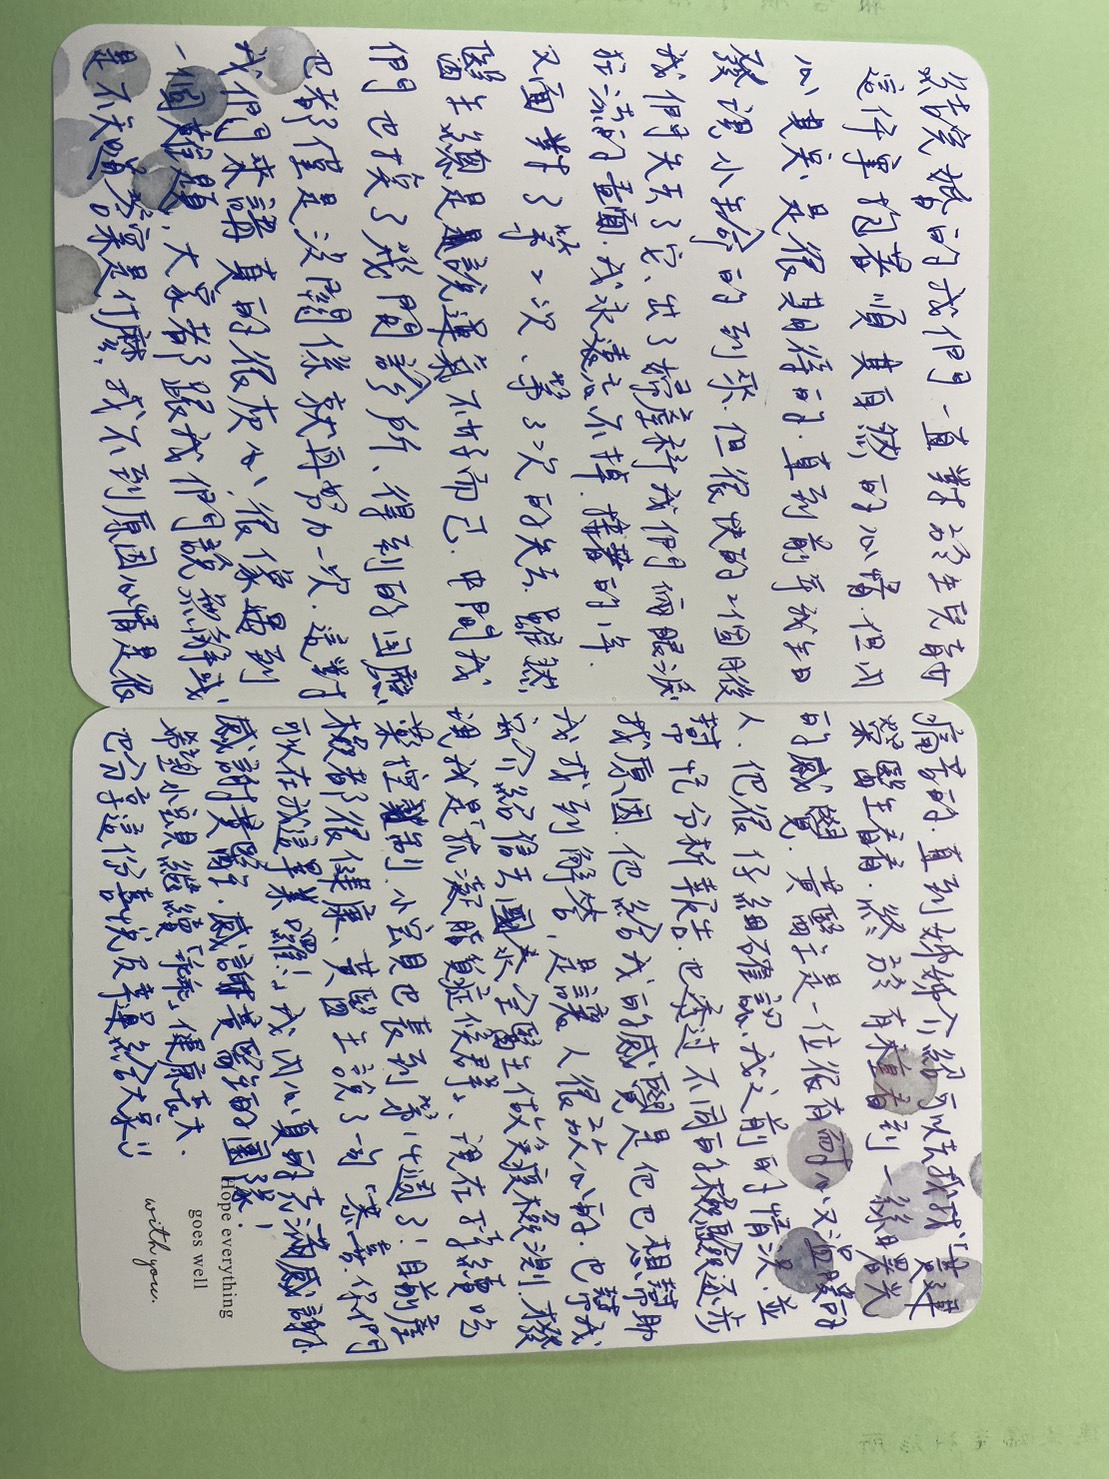 結完婚的我們一直對於生兒育女
這件事抱著順其自然的心情.但內
心其實是很期待的.直到前年我生日
發現小生命的到來.但很快的2個月後
我們失去了它、出了婦產科我們倆眼淚
狂流的畫面.我永遠忘不掉.接著的1年.
又面對了第2次、第3次的失去.雖然
醫生總是說運氣不好而已.中間我
們也換了幾間診所、得到的回應
也都僅是沒關係就再努力一次.這對
我們來講真的很灰心、很像遇到
一個難題,大家都跟我們說無解或
是不知道答案是什麼,找不到原因心情是很
痛苦的.直到姊姊介紹可以去找找「黃建
榮醫生看看.終於有種看到一絲曙光
的感覺.黃醫生是一位很有耐心又溫暖的
人.他很仔細確認我之前的情況.並
幫忙分析報告.也透過不同的檢驗逐步
找原因.他給我的感覺是他也想幫助
我找到解答,是讓人很放心的.也幫我
寫介紹信去國泰全醫生做免疫檢測.才發
現我是「抗凝脂質症候群」、現在持續吃
藥控制.小寶貝也長到第14週了!目前產
檢都很健康、黃醫生說了一句「恭喜.你們
可以在我這畢業囉!」我內心真的充滿感謝.
感謝黃醫生.感謝黃醫生的團隊!
希望小寶貝繼續「乖乖」健康長大.
也分享這份喜悅及幸運給大家!!
Hope everything
goes well
with you.